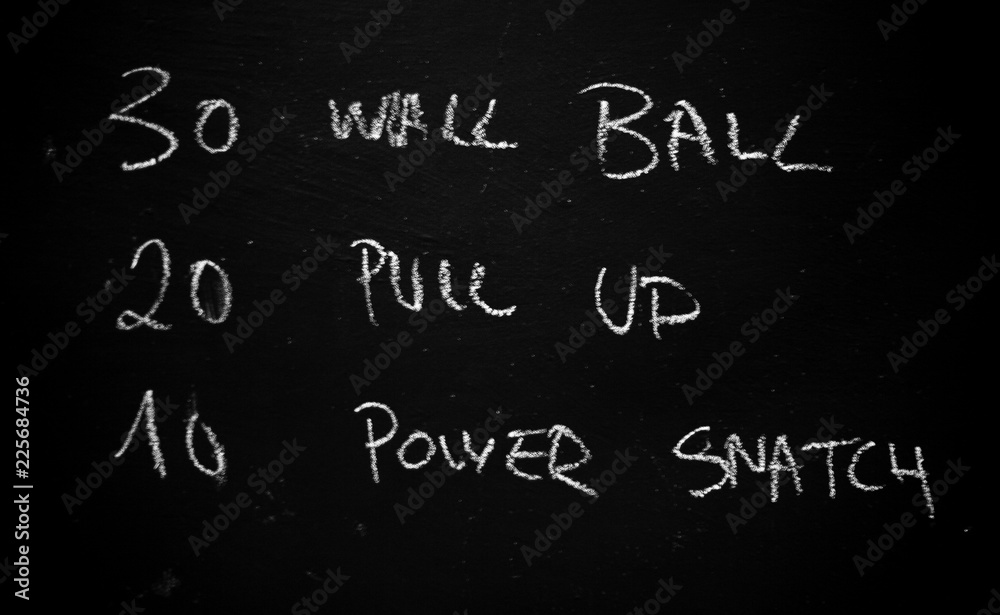 30 WALL BALL
20 PULL UP
10 POWER SNATCH
Adobe Stock | #225684736